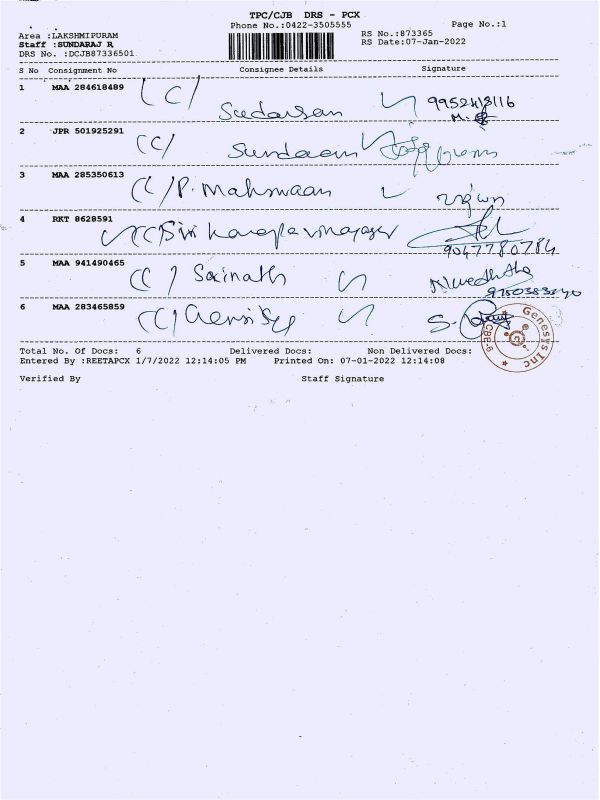 TPC/CJB DRS - PCX
Phone No.:0422-3505555 Page No.:1
Area :LAKSHMIPURAM RS No.:873365
Staff :SUNDARAJ R RS Date:07-Jan-2022
DRS No. :DCJB87336501
S No Consignment No Consignee Details Signature
1 MAA 284618489 (C/
Sudarsan
2 JPR 501925291 (C/
Sundaram
3 MAA 285350613 (C/P.
4 RKT 8628591 (C/Sri
9047780784
5 MAA 941490465 (C/ Sainath Nivedhtha
6 MAA 283465859 (C/ S.
Genesys Inc
CBE-9
Total No. Of Docs: 6 Delivered Docs: Non Delivered Docs:
Entered By :REETAPCX 1/7/2022 12:14:05 PM Printed On: 07-01-2022 12:14:08
Verified By Staff Signature